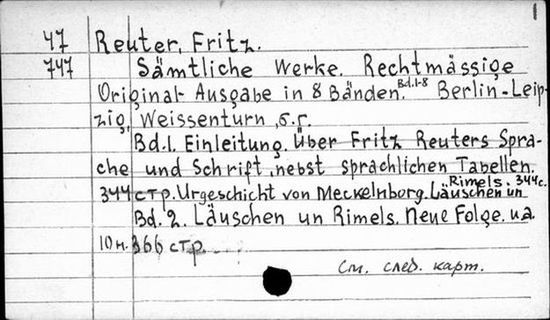 1
47 Reuter, Fritz.
747 Sämtliche Werke. Rechtmässige
Original-Ausgabe in 8 Bänden. Bd.1-8 Berlin-Leip-
zig, Weissenturn, s.г.
Bd.1. Einleitung. Über Fritz Reuters Spra-
che und Schrift, nebst sprachlichen Tabellen.
344 стр. Urgeschicht von Meckelnborg. Läuschen un Rimels. 344с.
Bd. 2. Läuschen un Rimels. Neue Folge. u.a.
10н. 366 стр.
См. след. карт.